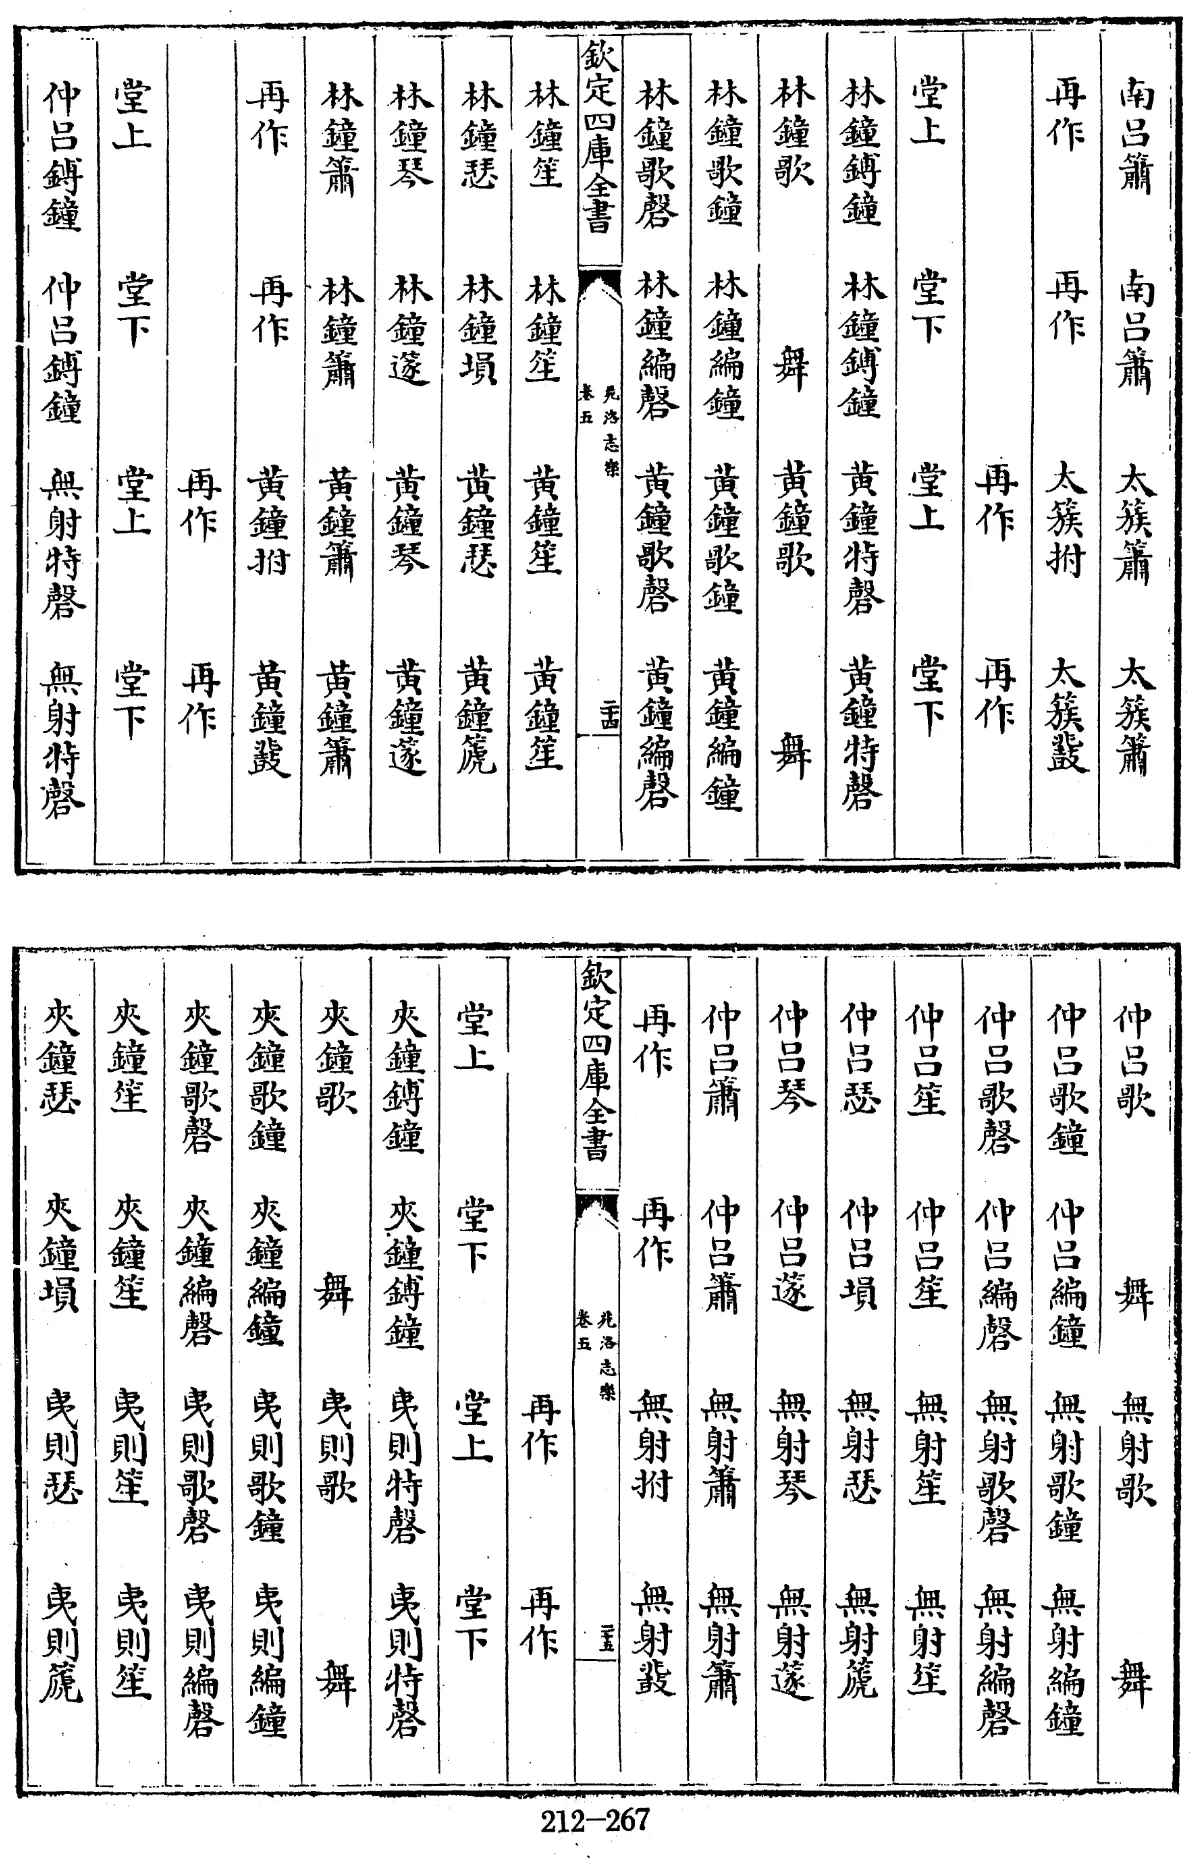 南呂簫　南呂簫　太簇簫　太簇簫
再作　再作　太簇拊　太簇鼗
再作　再作
堂上　堂下　堂上　堂下
林鐘鎛鐘　林鐘鎛鐘　黄鐘特磬　黄鐘特磬
林鐘歌　舞　黄鐘歌　舞
林鐘歌鐘　林鐘編鐘　黄鐘歌鐘　黄鐘編鐘
林鐘歌磬　林鐘編磬　黄鐘歌磬　黄鐘編磬
欽定四庫全書　苑洛志樂　卷五　二十四
林鐘笙　林鐘笙　黄鐘笙　黄鐘笙
林鐘瑟　林鐘塤　黄鐘瑟　黄鐘篪
林鐘琴　林鐘篴　黄鐘琴　黄鐘篴
林鐘簫　林鐘簫　黄鐘簫　黄鐘簫
再作　再作　黄鐘拊　黄鐘鼗
再作　再作
堂上　堂下　堂上　堂下
仲呂鎛鐘　仲呂鎛鐘　無射特磬　無射特磬
仲呂歌　舞　無射歌　舞
仲呂歌鐘　仲呂編鐘　無射歌鐘　無射編鐘
仲呂歌磬　仲呂編磬　無射歌磬　無射編磬
仲呂笙　仲呂笙　無射笙　無射笙
仲呂瑟　仲呂塤　無射瑟　無射篪
仲呂琴　仲呂篴　無射琴　無射篴
仲呂簫　仲呂簫　無射簫　無射簫
再作　再作　無射拊　無射鼗
欽定四庫全書　苑洛志樂　卷五　二十五
再作　再作
堂上　堂下　堂上　堂下
夾鐘鎛鐘　夾鐘鎛鐘　夷則特磬　夷則特磬
夾鐘歌　舞　夷則歌　舞
夾鐘歌鐘　夾鐘編鐘　夷則歌鐘　夷則編鐘
夾鐘歌磬　夾鐘編磬　夷則歌磬　夷則編磬
夾鐘笙　夾鐘笙　夷則笙　夷則笙
夾鐘瑟　夾鐘塤　夷則瑟　夷則篪
212-267